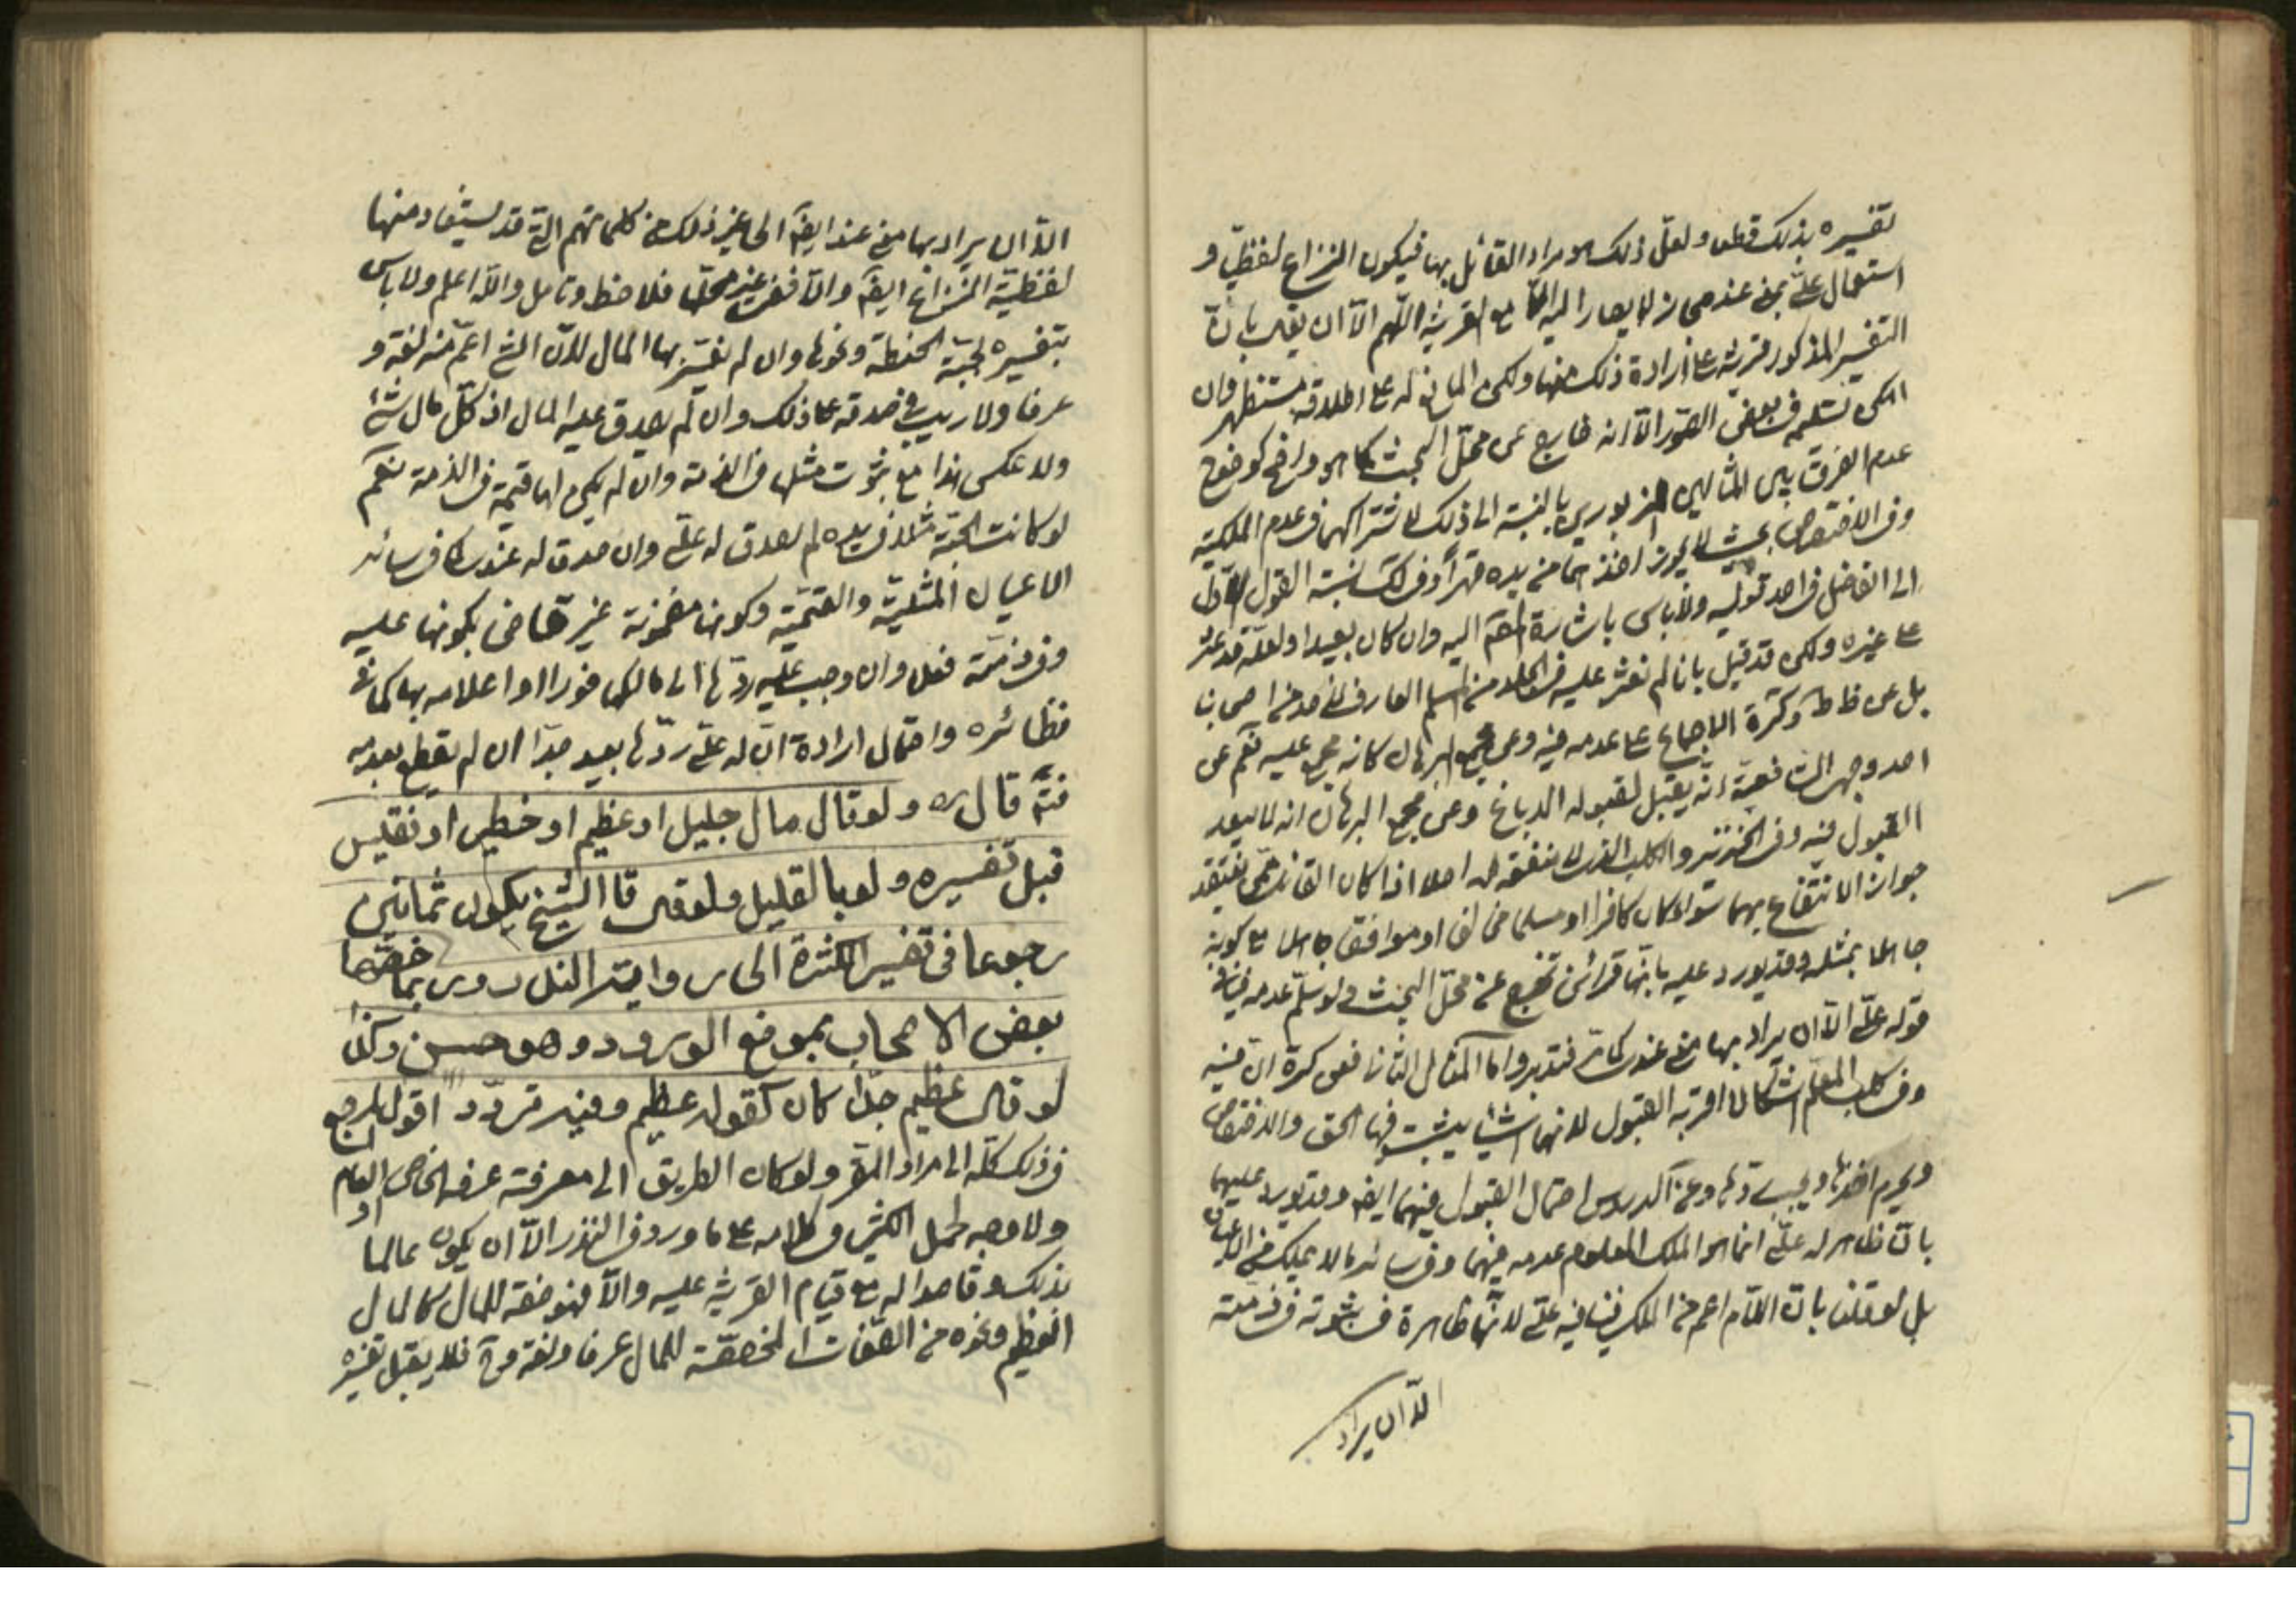 تفسيره بذلك قطعا ولعلّ ذلك هو مراد القائل بها فيكون النزاع لفظيّا و
استعمال علىّ بمعنى عندى مجاز لا يصار اليه الّا مع القرينة اللّهم الّا ان يقال بانّ
التفسير المذكور قرينة على ارادة ذلك منها ولكن المانع له على اطلاقه مستظهر وان
امكن تسليمه فى بعض الصّور الّا انه خارج عن محلّ البحث كما هو واضح كوضوح
عدم الفرق بين المثالين المزبورين بالنسبة الى ذلك لاشتراكهما فى عدم الملكية
وفى الاختصاص بحيث لا يجوز اخذهما من يده قهراً وفى لك نسبة القول الاوّل
الى الفاضل فى احد قوليه ولا باس باشارة المص اليه وان كان بعيدا ولعلّه قد عثر
على غيره ولكن قد قيل بانا لم نعثر عليه فى الجلد من المسلم العارف لاحد من اصحابنا
بل عن ظاهر كرة الاجماع على عدمه فيه وعن مجمع البرهان كانه مجمع عليه نعم عن
احد وجهى الشافعية انّه يقبل لقبوله الدباغ وعن مجمع البرهان انه لا يبعد
القبول فيه وفى الخنزير والكلب الذى لا منفعة له اصلا اذا كان القائل ممن يعتقد
جواز الانتفاع بهما سواء كان كافرا او مسلما مخالفا او موافقا جاهلا مع كونه
جاهلا بمثله وقد يورد عليه بانّها قرائن تخرج عن محلّ البحث ولو سلّم عدمه فينافيه
قوله علىّ الّا ان يراد بها معنى عندى كما مر فتدبر واما المثال الثانى فعن كرة انّ فيه
وفى كلب المعلّم اشكالا اقربه القبول لانهما اشياء يثبت فيها الحق والاختصاص
ويحرم اخذها ويجب ردّها وعن الدروس احتمال القبول فيهما ايضا وقد يورد عليهما
بانّ ظاهر له علىّ انما هو الملك المعلوم عدمه فيهما وفى سائر ما لا يملك من الاعيان
بل لو قلنا بانّ اللّام اعم من الملك فينافيه علىّ لانّها ظاهرة فى ثبوته فى ذمّته
الّا ان يراد
الّا ان يراد بها معنى عند ايضاً الى غير ذلك من كلماتهم التى قد يستفاد منها
لفظيّة النزاع ايضاً والّا ففى غير محلّها فلاحظ وتامل واللّه اعلم ولا باس
بتفسيره بحبّة الحنطة ونحوها وان لم نفسّر بها المال لانّ الشئ اعمّ منه لغة و
عرفا ولا ريب فى صدقه على ذلك وان لم يصدق عليه المال اذ كلّ مال شئ
ولا عكس هذا مع ثبوت مثلها فى الذمة وان لم يكن لها قيمة فى الذمة نعم
لو كانت الحبّة مثلا فى يده لم يصدق له علىّ وان صدق له عندى كما فى سائر
الاعيان المثليّة والقيميّة وكونها مضمونة غير قاض بكونها عليه
وفى ذمّته فعلا وان وجب عليه ردّها الى مالكها فورا او اعلامه بها كما فى
نظائره واحتمال ارادة انّ له علىّ ردّها بعيد جدّا ان لم نقطع بعدمه
قال ره ولو قال مال جليل او عظيم او خطير او نفيس
قبل تفسيره ولو بالقليل ولو قال قال الشيخ يكون ثمانين
رجوعا فى تفسير الكثرة الى رواية النذر وربما خصّها
بعض الاصحاب بموضع الورود وهو حسن وكذا
لو قال عظيم جدّا كان كقوله عظيم وفيه تردّد اقول المرجع
فى ذلك كلّه الى مراد المقر ولو كان الطريق الى معرفته عرفه الخاص او العام
ولا وجه لحمل الكثير فى كلامه على ما ورد فى النذر الّا ان يكون عالما
بذلك وقاصدا له مع قيام القرينة عليه والّا فهو صفة للمال كالمال
العظيم ونحوه من الصّفات المخصّصة للمال عرفا ولغة وح فلا يقبل تفسيره